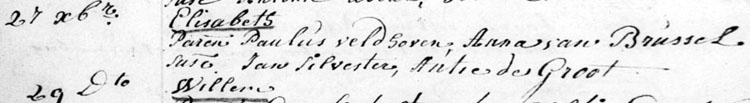 27 xbris.
Elisabeth
Paren Paulus veldhoven, Anna van Brussel.
Susc Jan Silvester, Antie de Groot
29 Dto Willem